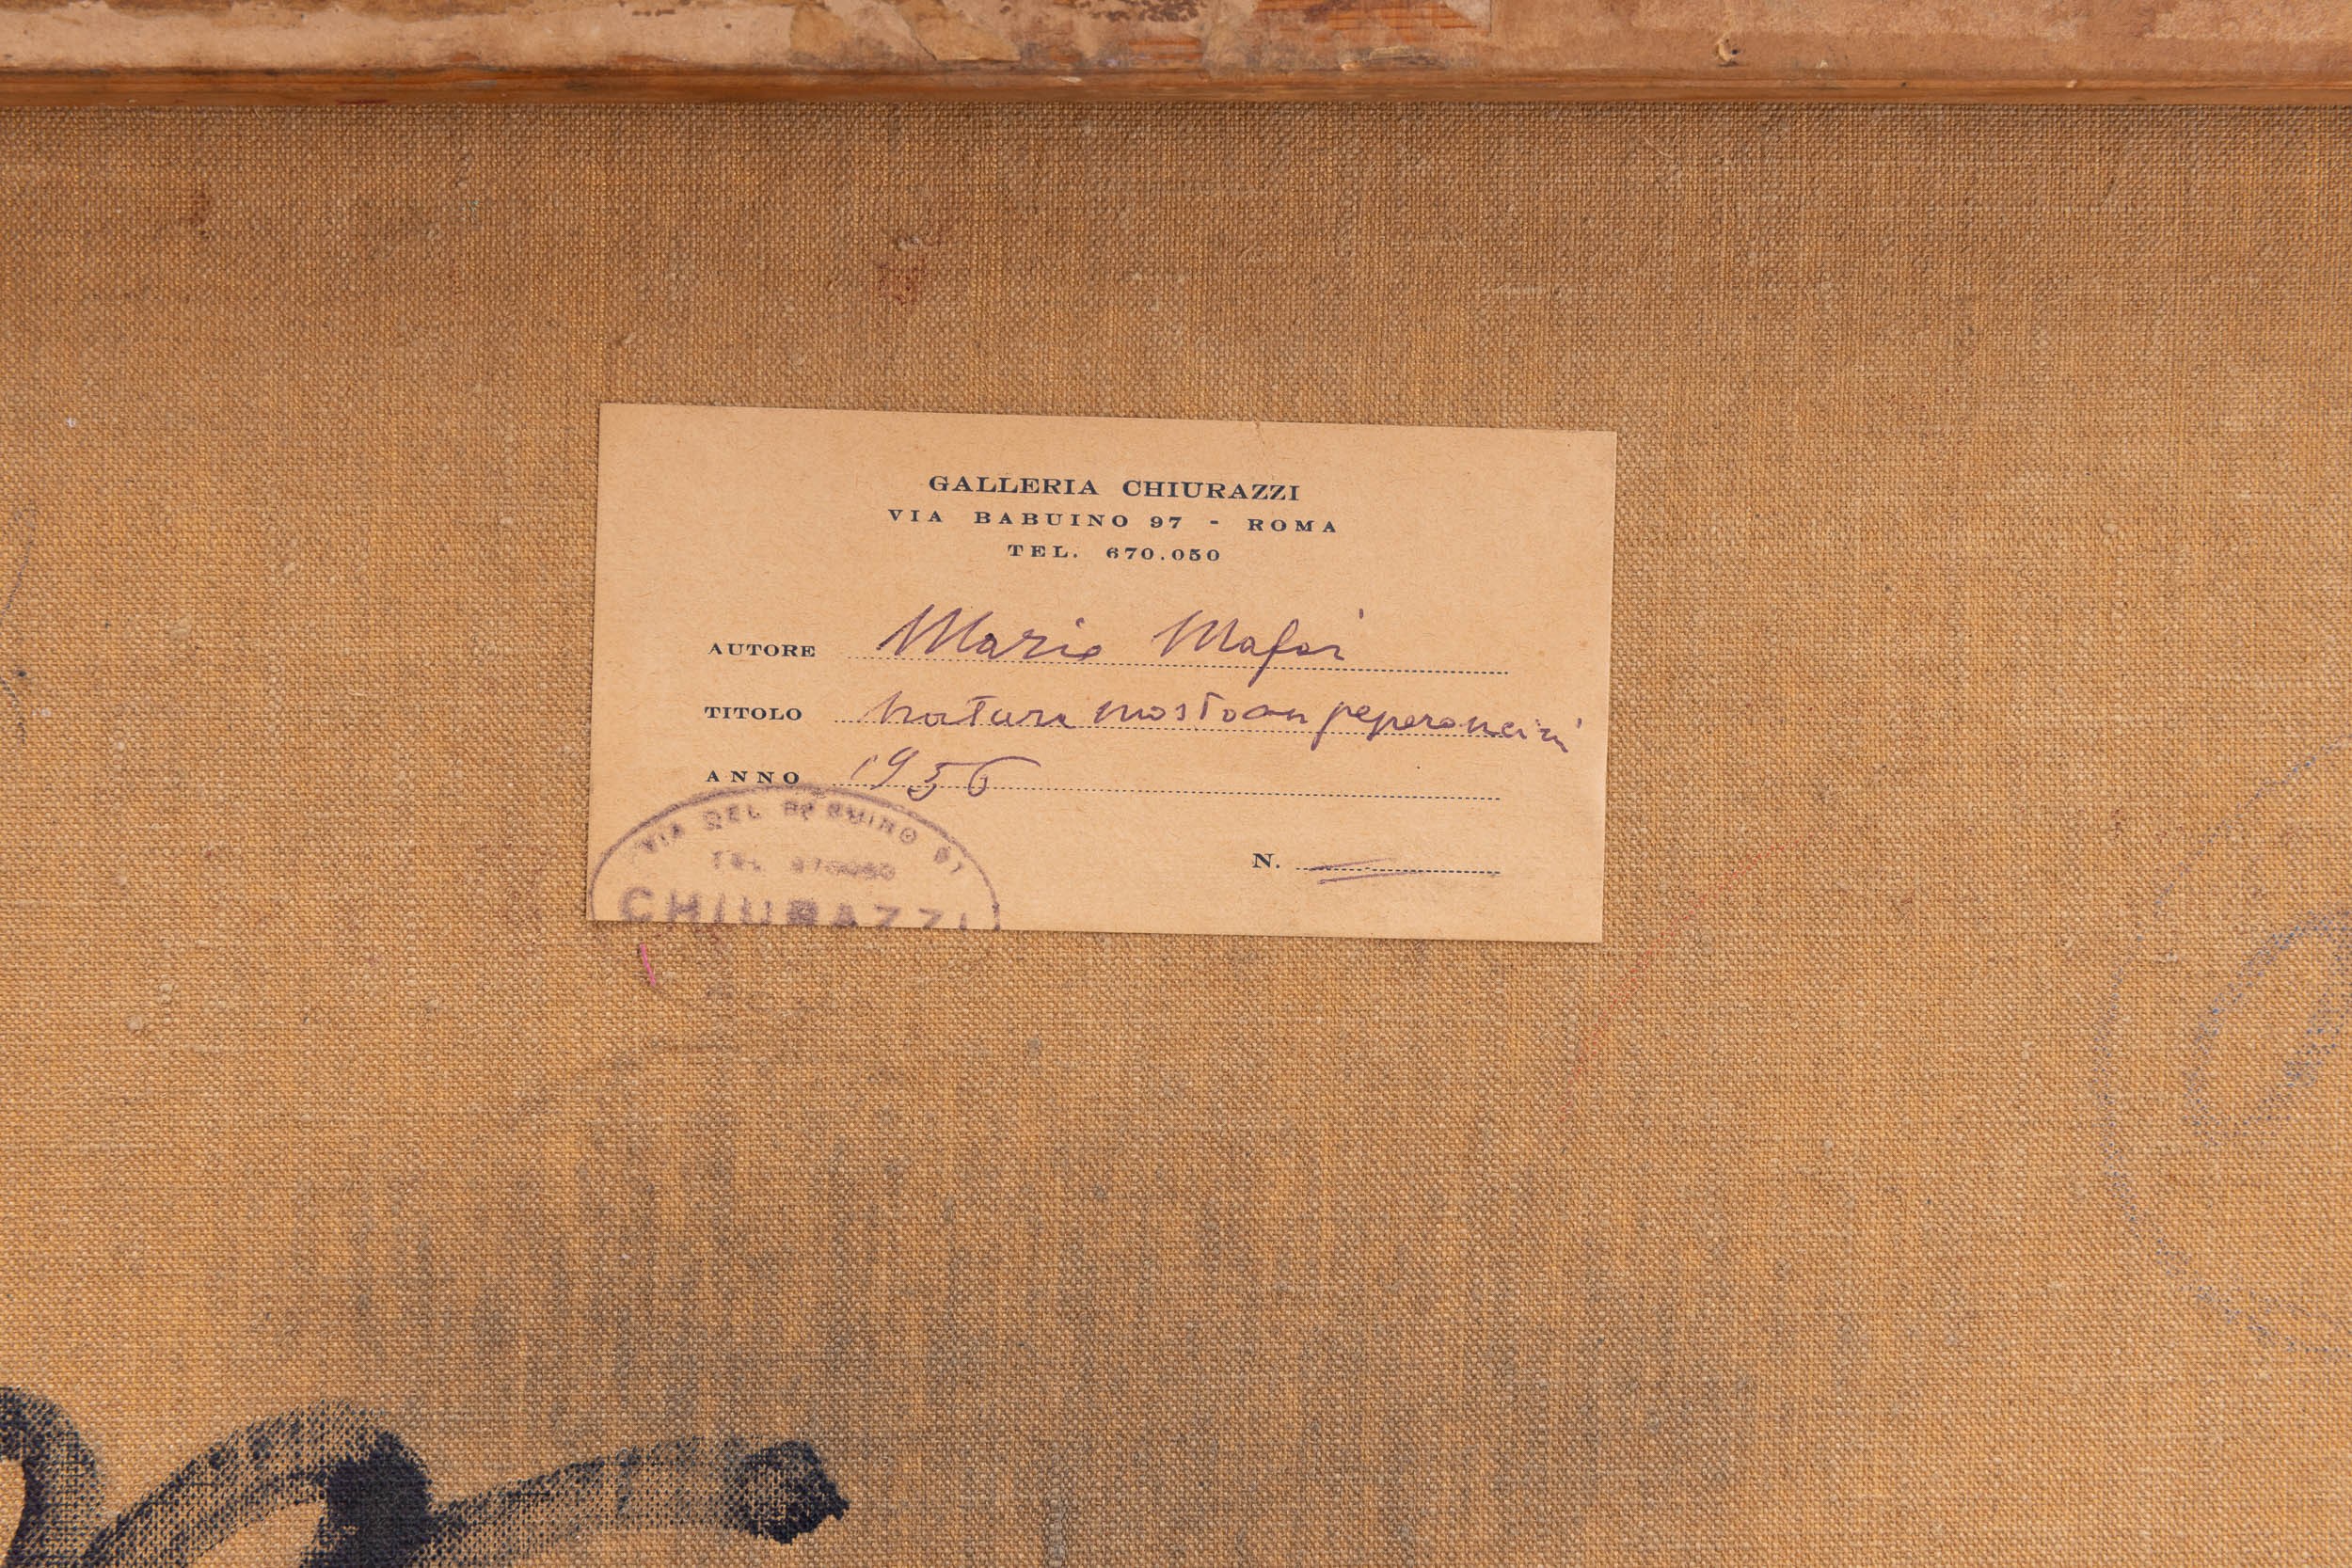 GALLERIA CHIURAZZI
VIA BABUINO 97 - ROMA
TEL. 670.050
AUTORE Mario Mafai
TITOLO natura morta con peperoncini
ANNO 1956
N.
VIA DEL BABUINO 97
TEL. 670050
CHIURAZZI